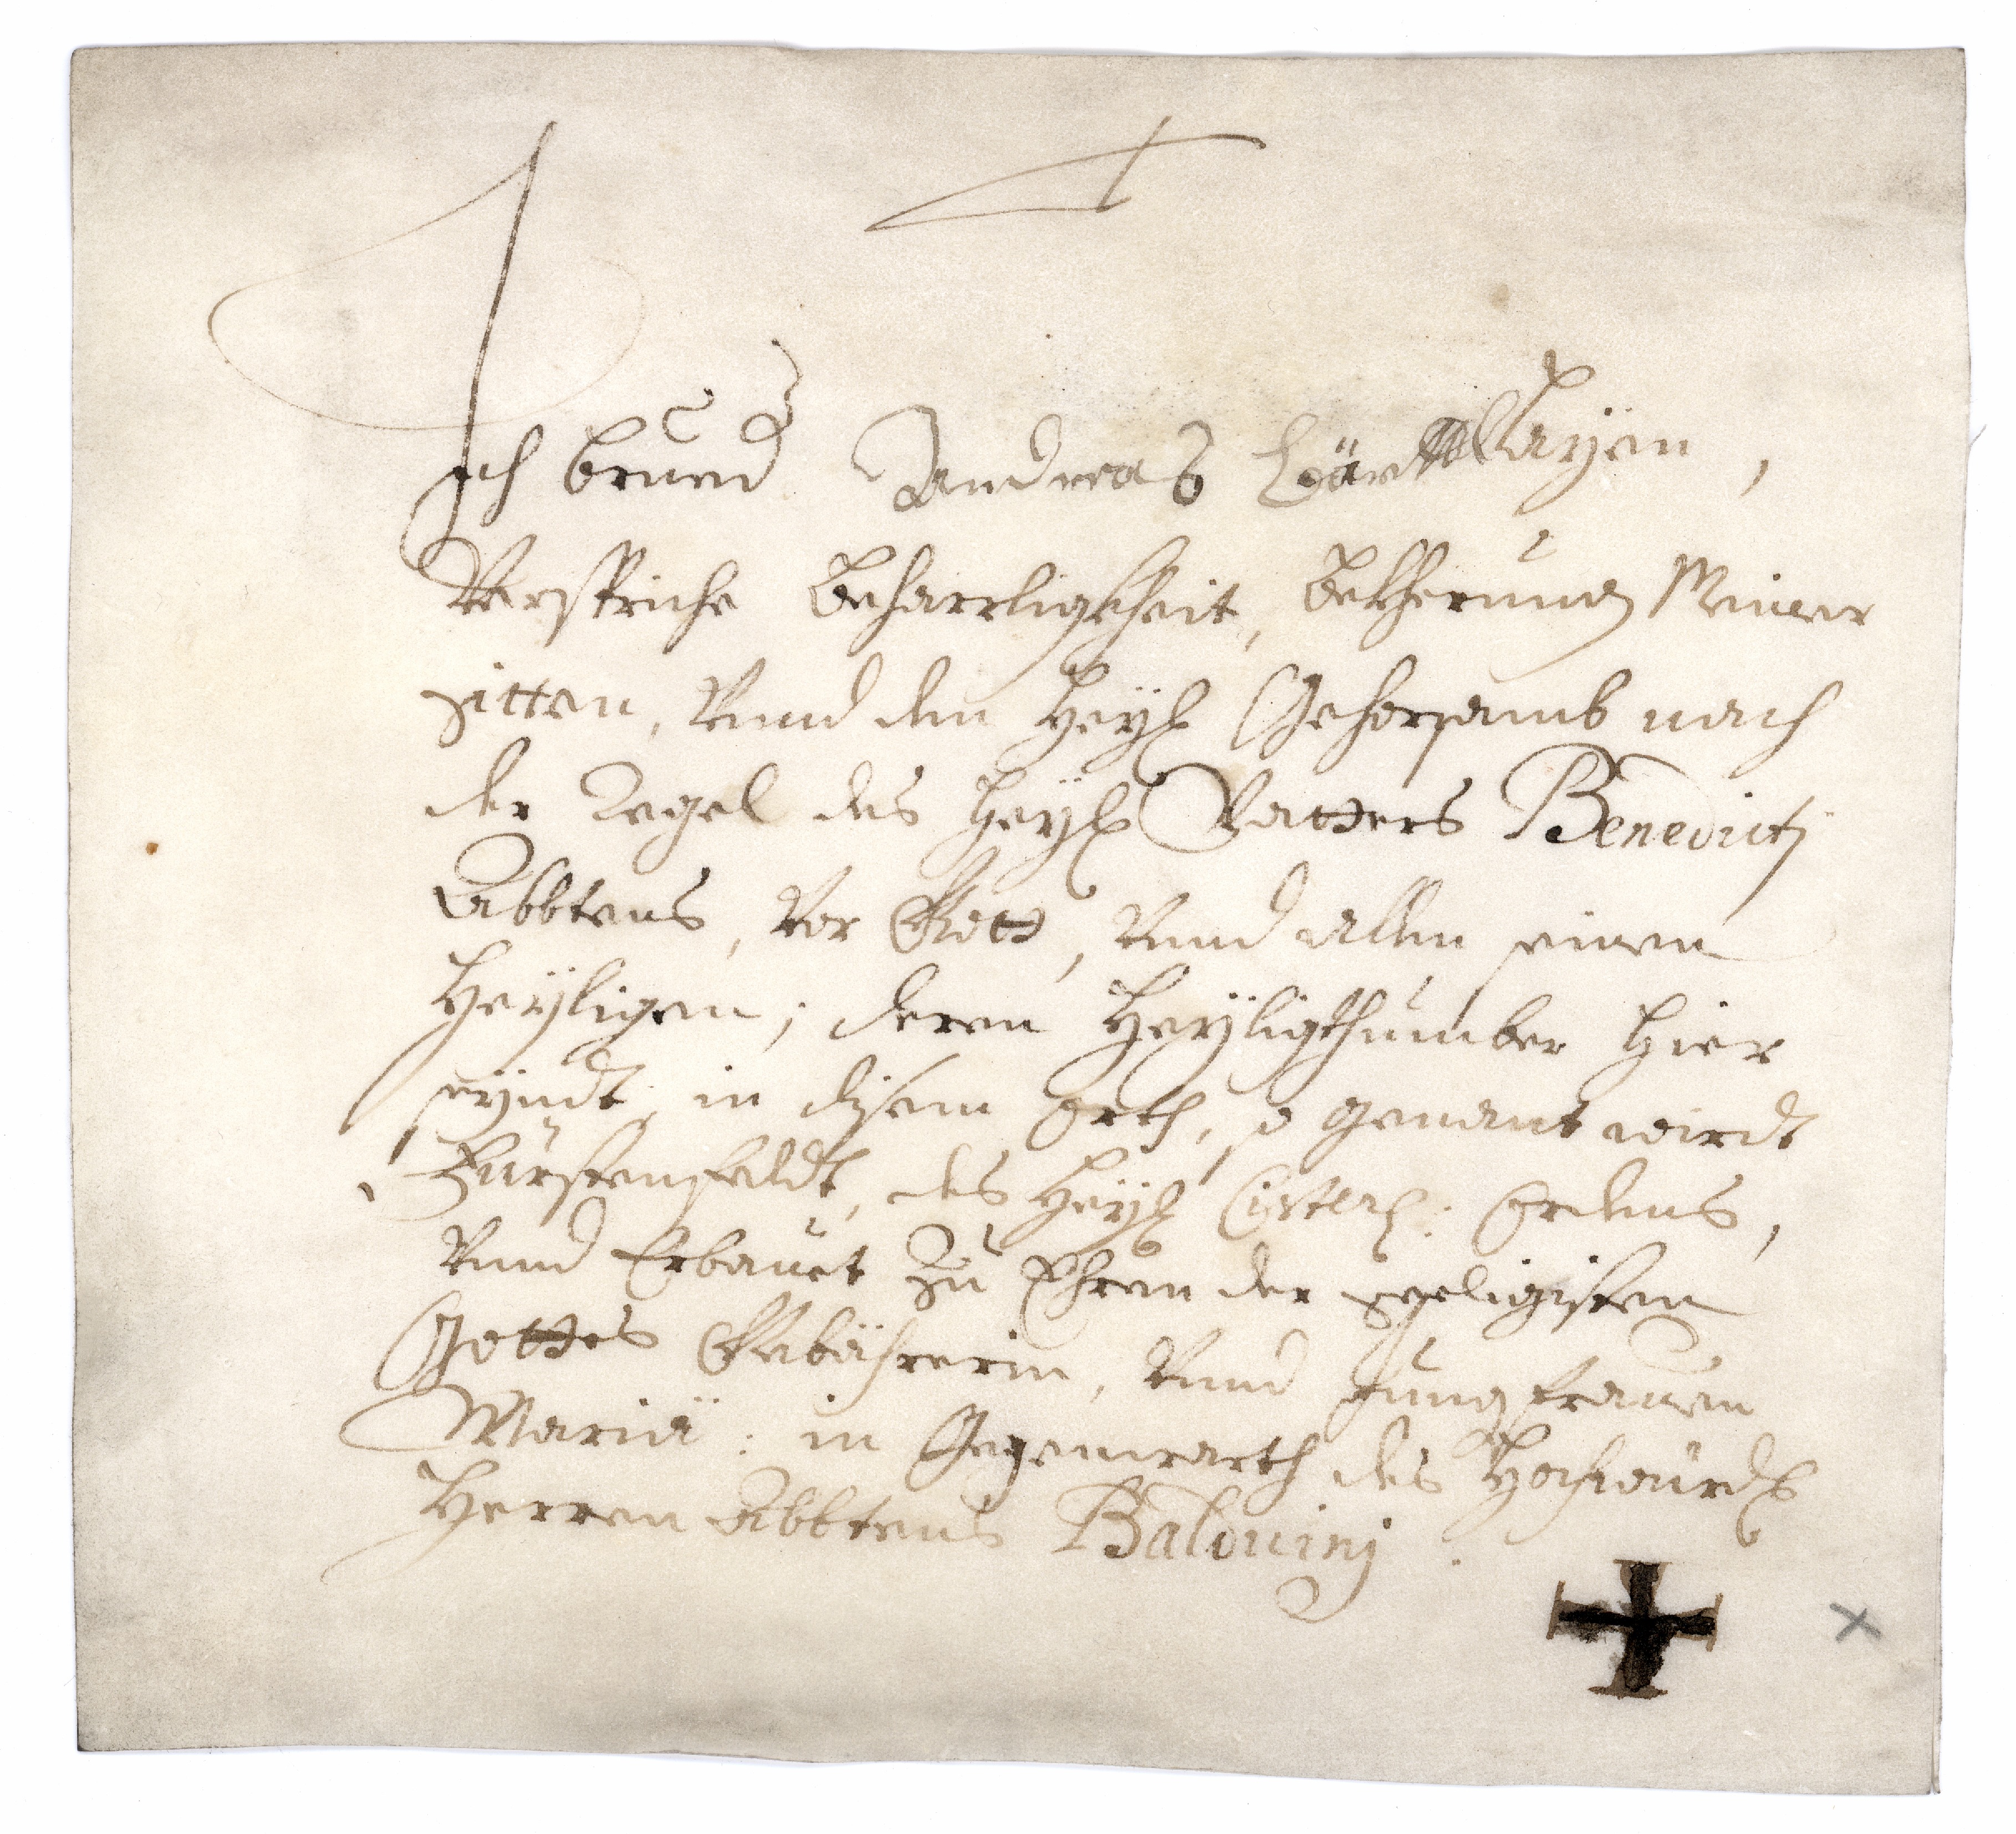 Ich brued Andreas Layen,
Verspriche Beharrligkheit, bekherung Meiner
Sitten, Vnnd den Heyl Gehorsamb nach
der Regel des Heyl Vatters Benedicti
Abbtens, Vor Gott, Vnnd allen seinen
Heyligen; deren Heyligthumber hier
seyndt, in disem orth, so genant wirdt
Fürstenfeldt, des Heyl Cisterc: Ordens,
Vnnd Erbauet Zu Ehren der seeligisten
Gottes Gebährerin, Vnnd Jungfrauen
Mariä: in Gegenwarth des Hochwürd
Herren Abbtens Balduinj.